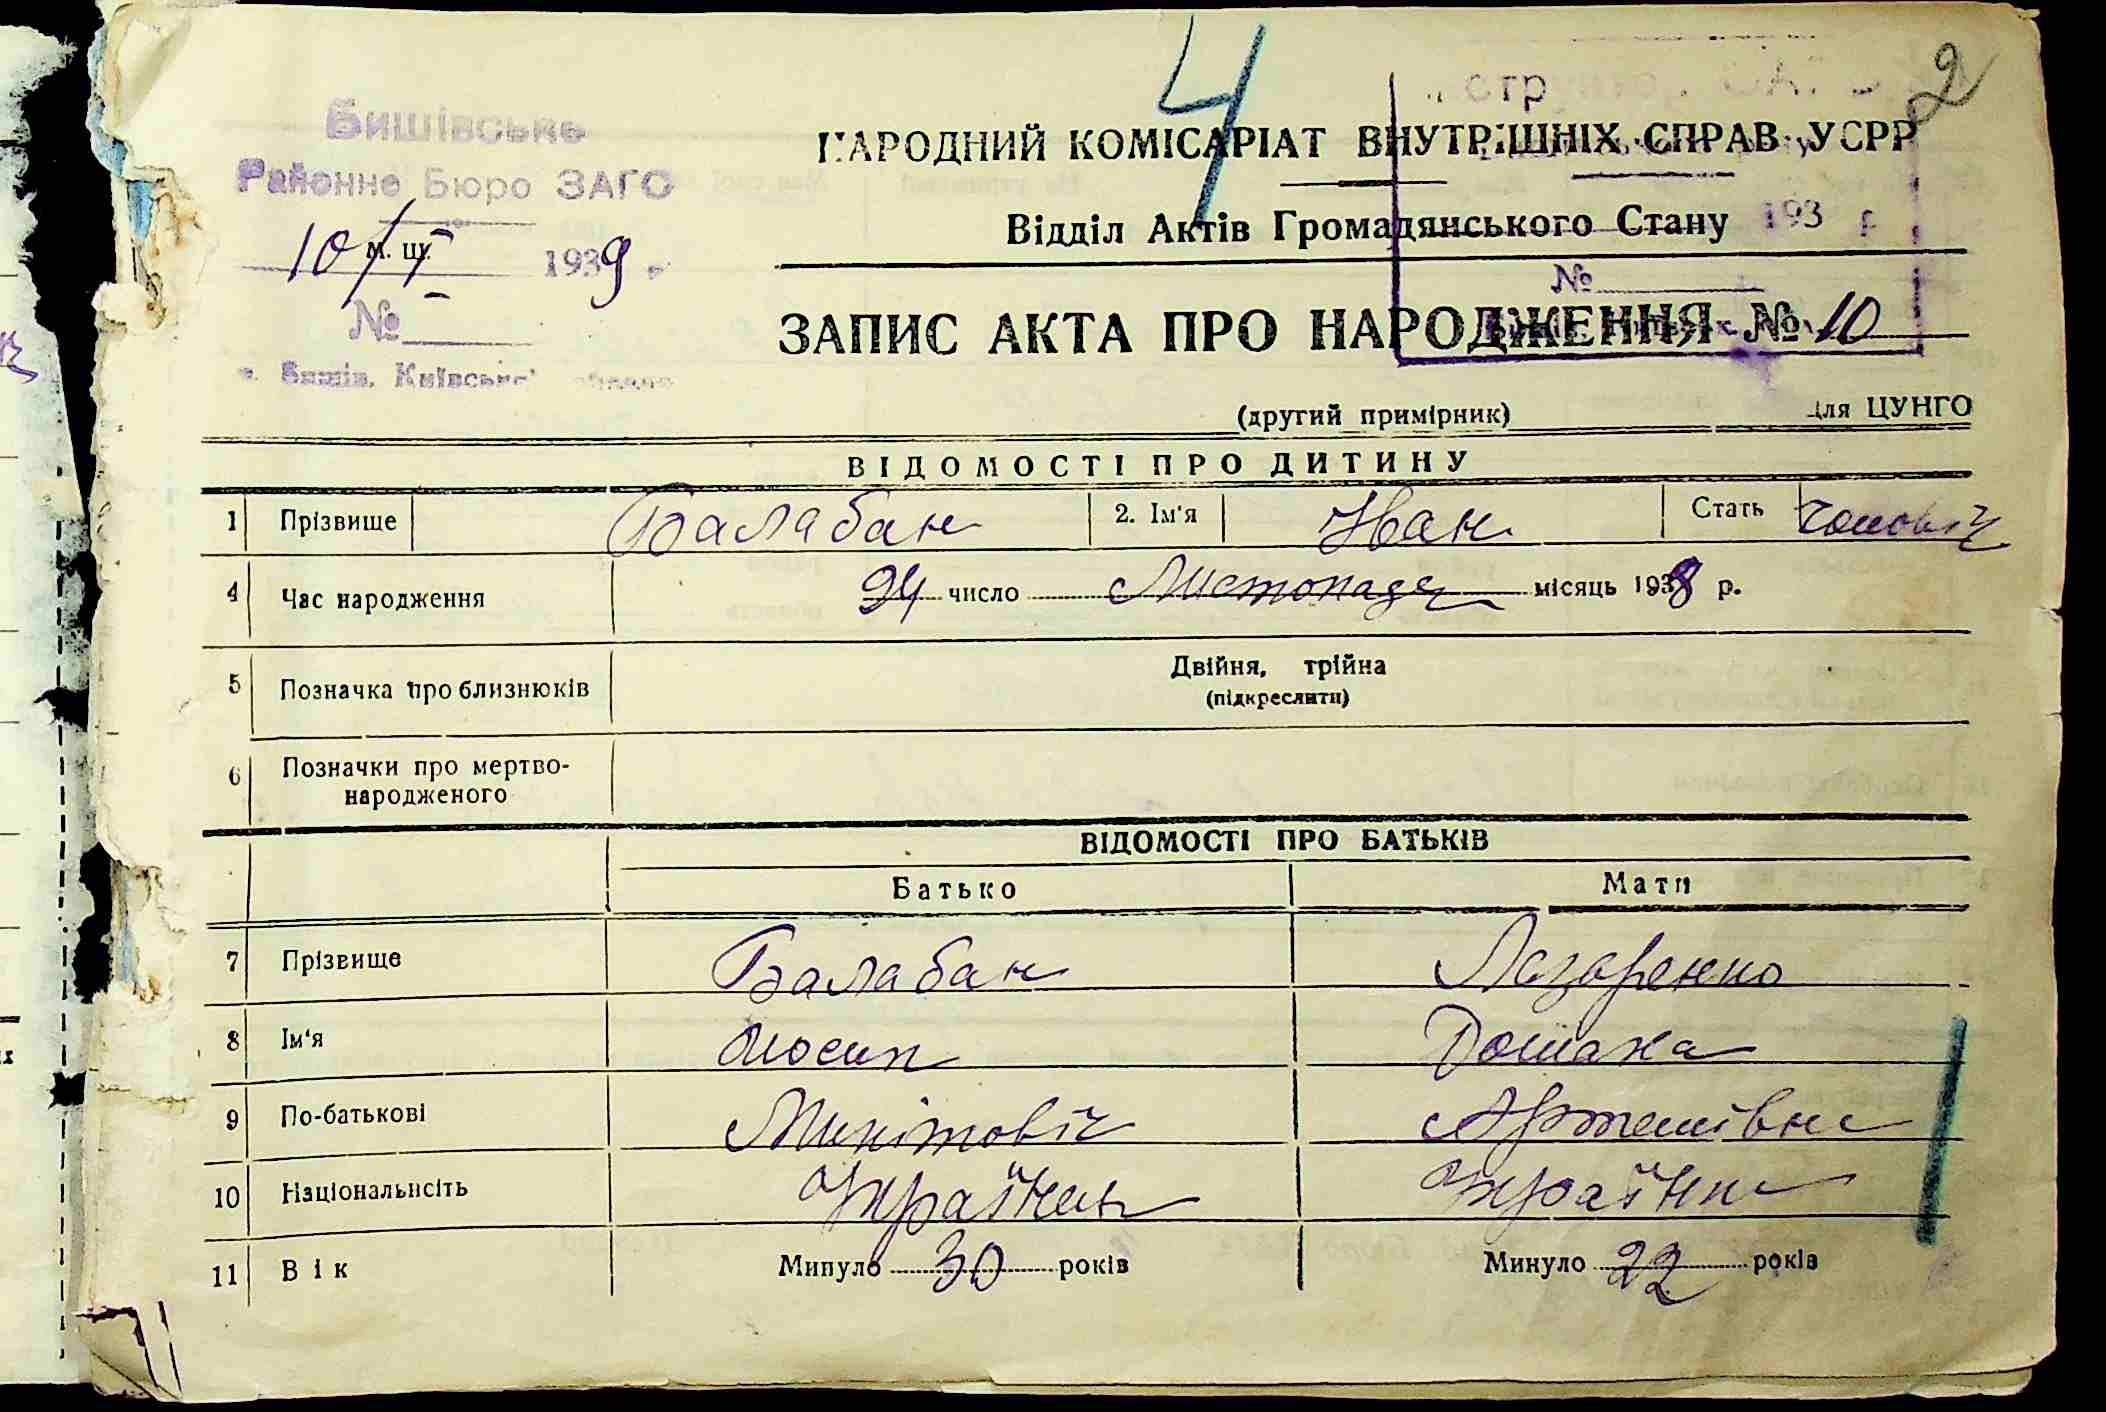 4
2
Бишівське
Районне Бюро ЗАГС
НАРОДНИЙ КОМІСАРІАТ ВНУТРІШНІХ СПРАВ УСРР
Відділ Актів Громадянського Стану
193 р.
10/I 1939 р.
м. ц.
№
№
ЗАПИС АКТА ПРО НАРОДЖЕННЯ № 10
с. Бишів, Київської
(другий примірник) Для ЦУНГО
ВІДОМОСТІ ПРО ДИТИНУ
1 Прізвище Балабан 2. Ім'я Иван Стать чоловіч
4 Час народження 24 число Листопада місяць 1938 р.
5 Позначка про близнюків Двійня, трійна
(підкреслити)
6 Позначки про мертво-
народженого
ВІДОМОСТІ ПРО БАТЬКІВ
Батько Мати
7 Прізвище Балабан Лазаренко
8 Ім'я Иосип Домаха
9 По-батькові Микітовіч Артемівна
10 Національність Українец Українка
11 Вік Минуло 30 років Минуло 22 років